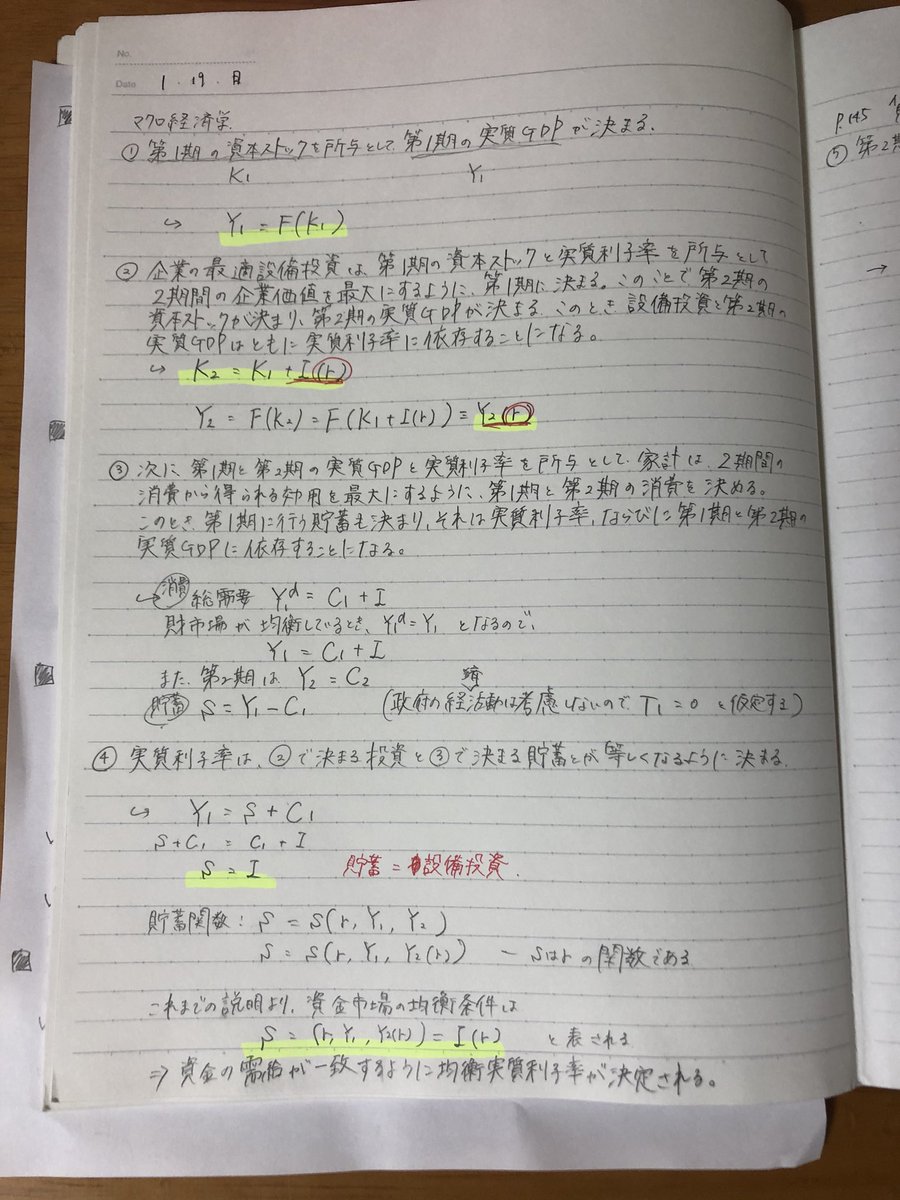 No.
Date 1.19.日
マクロ経済学.
① 第1期の資本ストックを所与として、第1期の実質GDPが決まる.
K₁ Y₁
↪ Y₁ = F(K₁)
② 企業の最適設備投資は、第1期の資本ストックと実質利子率を所与として
2期間の企業価値を最大にするように、第1期に決まる。このことで、第2期の
資本ストックが決まり、第2期の実質GDPが決まる. このとき設備投資と第2期の
実質GDPはともに実質利子率に依存することになる。
↪ K₂ = K₁ + I(r)
Y₂ = F(K₂) = F(K₁ + I(r)) = Y₂(r)
③ 次に第1期と第2期の実質GDPと実質利子率を所与として、家計は、2期間の
消費から得られる効用を最大にするように、第1期と第2期の消費を決める。
このとき、第1期に行う貯蓄も決まり、それは実質利子率、ならびに第1期と第2期の
実質GDPに依存することになる。
↪ 消費 総需要 Y₁ᵈ = C₁ + I
財市場が均衡しているとき、Y₁ᵈ = Y₁ となるので、
Y₁ = C₁ + I
また、第2期は Y₂ = C₂
貯蓄 S = Y₁ − C₁ (政府の経済活動は考慮しないので T₁ = 0 と仮定する)
④ 実質利子率は、②で決まる投資と③で決まる貯蓄とが等しくなるように決まる.
↪ Y₁ = S + C₁
S + C₁ = C₁ + I
S = I 貯蓄 = 設備投資.
貯蓄関数: S = S(r, Y₁, Y₂)
S = S(r, Y₁, Y₂(r)) ― Sはrの関数である
これまでの説明より、資金市場の均衡条件は
S = (r, Y₁, Y₂(r)) = I(r) と表される
⇒ 資金の需給が一致するように均衡実質利子率が決定される。
P.145
⑤ 第2期
→